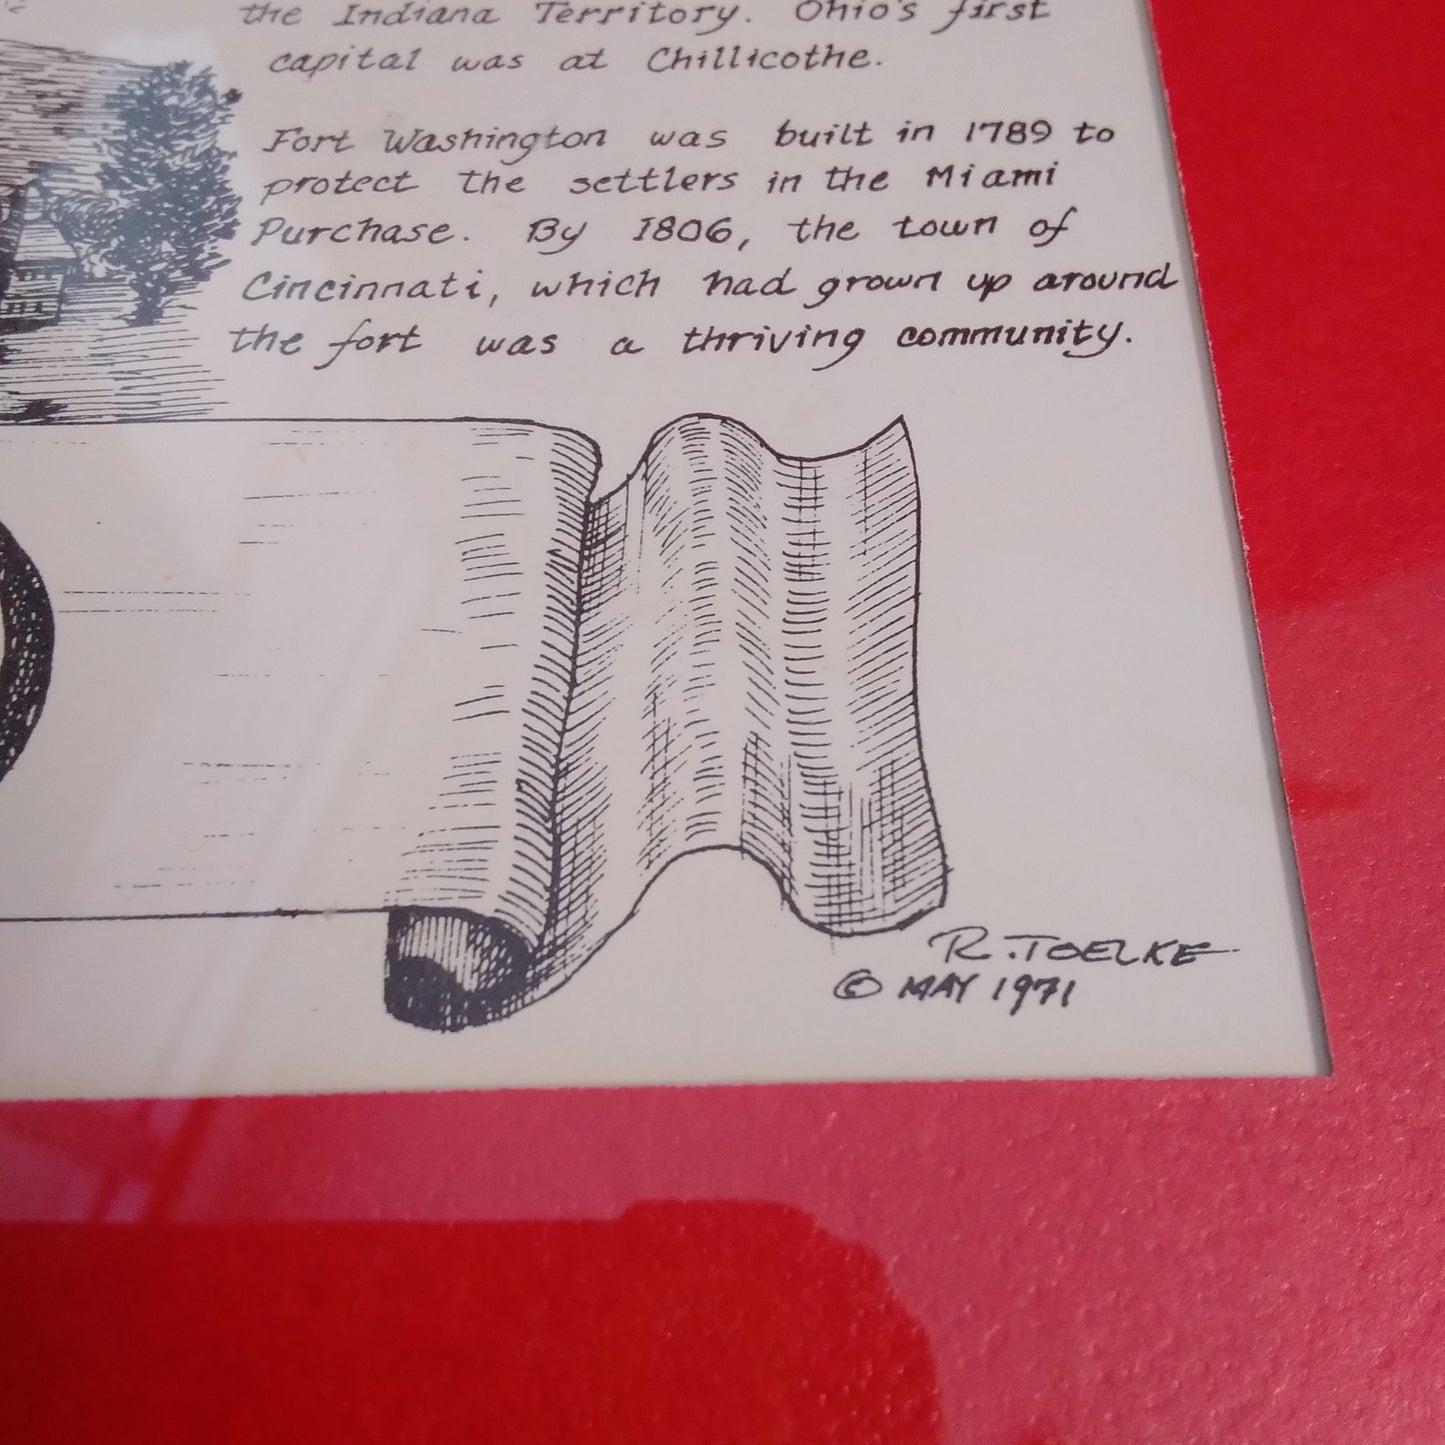 the Indiana Territory. Ohio's first
capital was at Chillicothe.
Fort Washington was built in 1789 to
protect the settlers in the Miami
Purchase. By 1806, the town of
Cincinnati, which had grown up around
the fort was a thriving community.
R. TOELKE
© MAY 1971